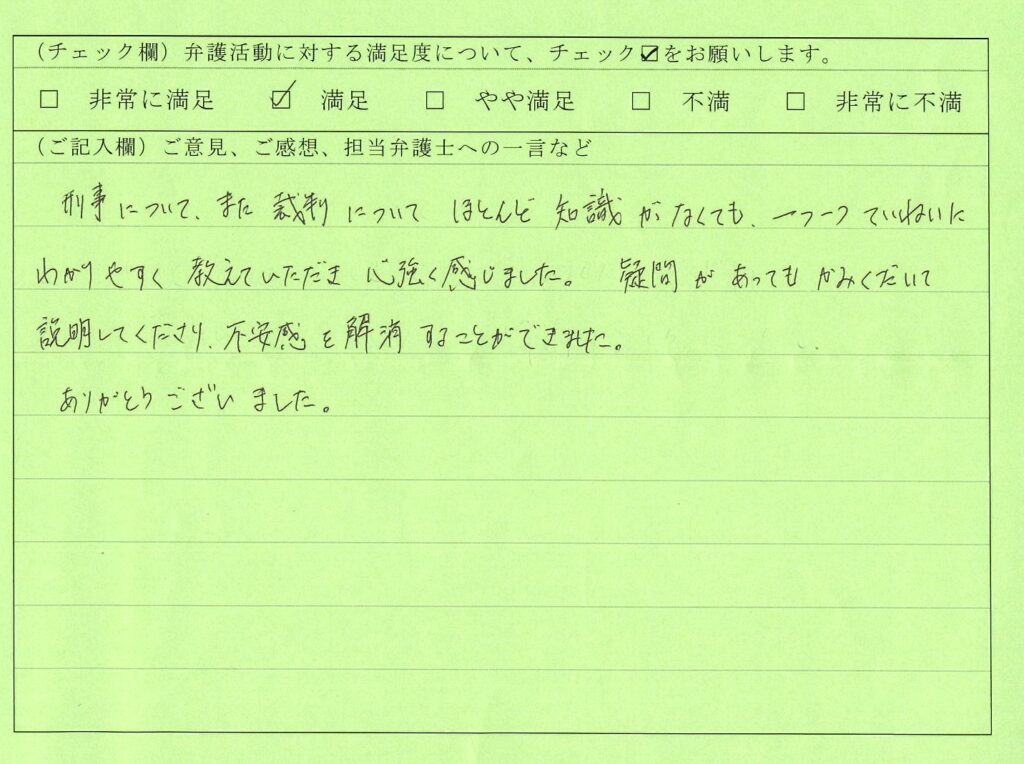 (チェック欄) 弁護活動に対する満足度について、チェック☑をお願いします。
□ 非常に満足 ☑ 満足 □ やや満足 □ 不満 □ 非常に不満
(ご記入欄) ご意見、ご感想、担当弁護士への一言など
刑事について、また裁判についてほとんど知識がなくても、一つ一つていねいに
わかりやすく教えていただき心強く感じました。疑問があってもかみくだいて
説明してくださり、不安感を解消することができました。
ありがとうございました。